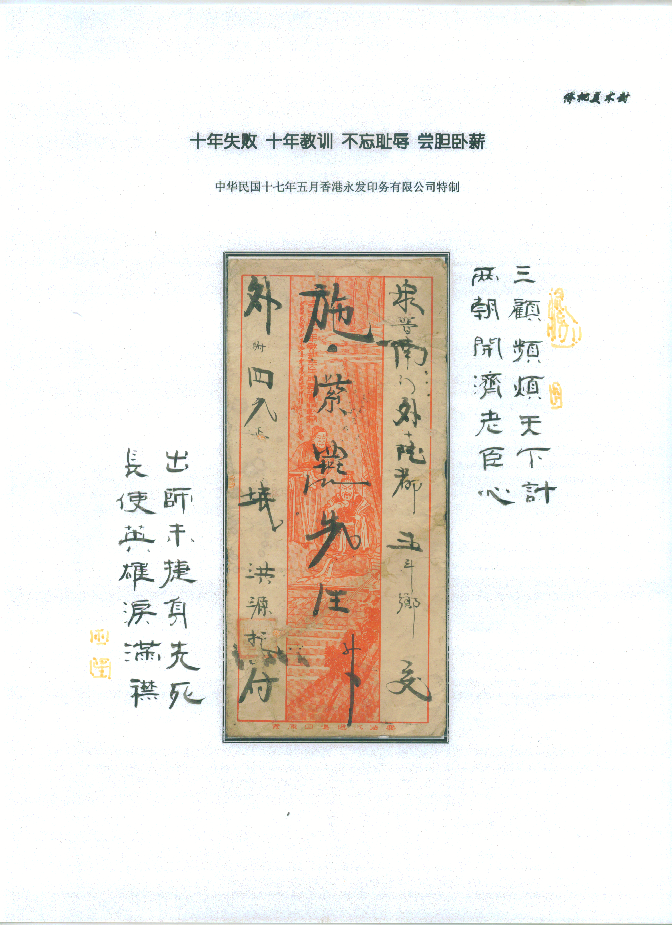 侨批美术封
十年失败 十年教训 不忘耻辱 尝胆卧薪
中华民国十七年五月香港永发印务有限公司特制
三顧頻煩天下計
兩朝開濟老臣心
泉晋南门外 五斗鄉 交
施 先生
外附四 洪源 付
出師未捷身先死
長使英雄淚滿襟